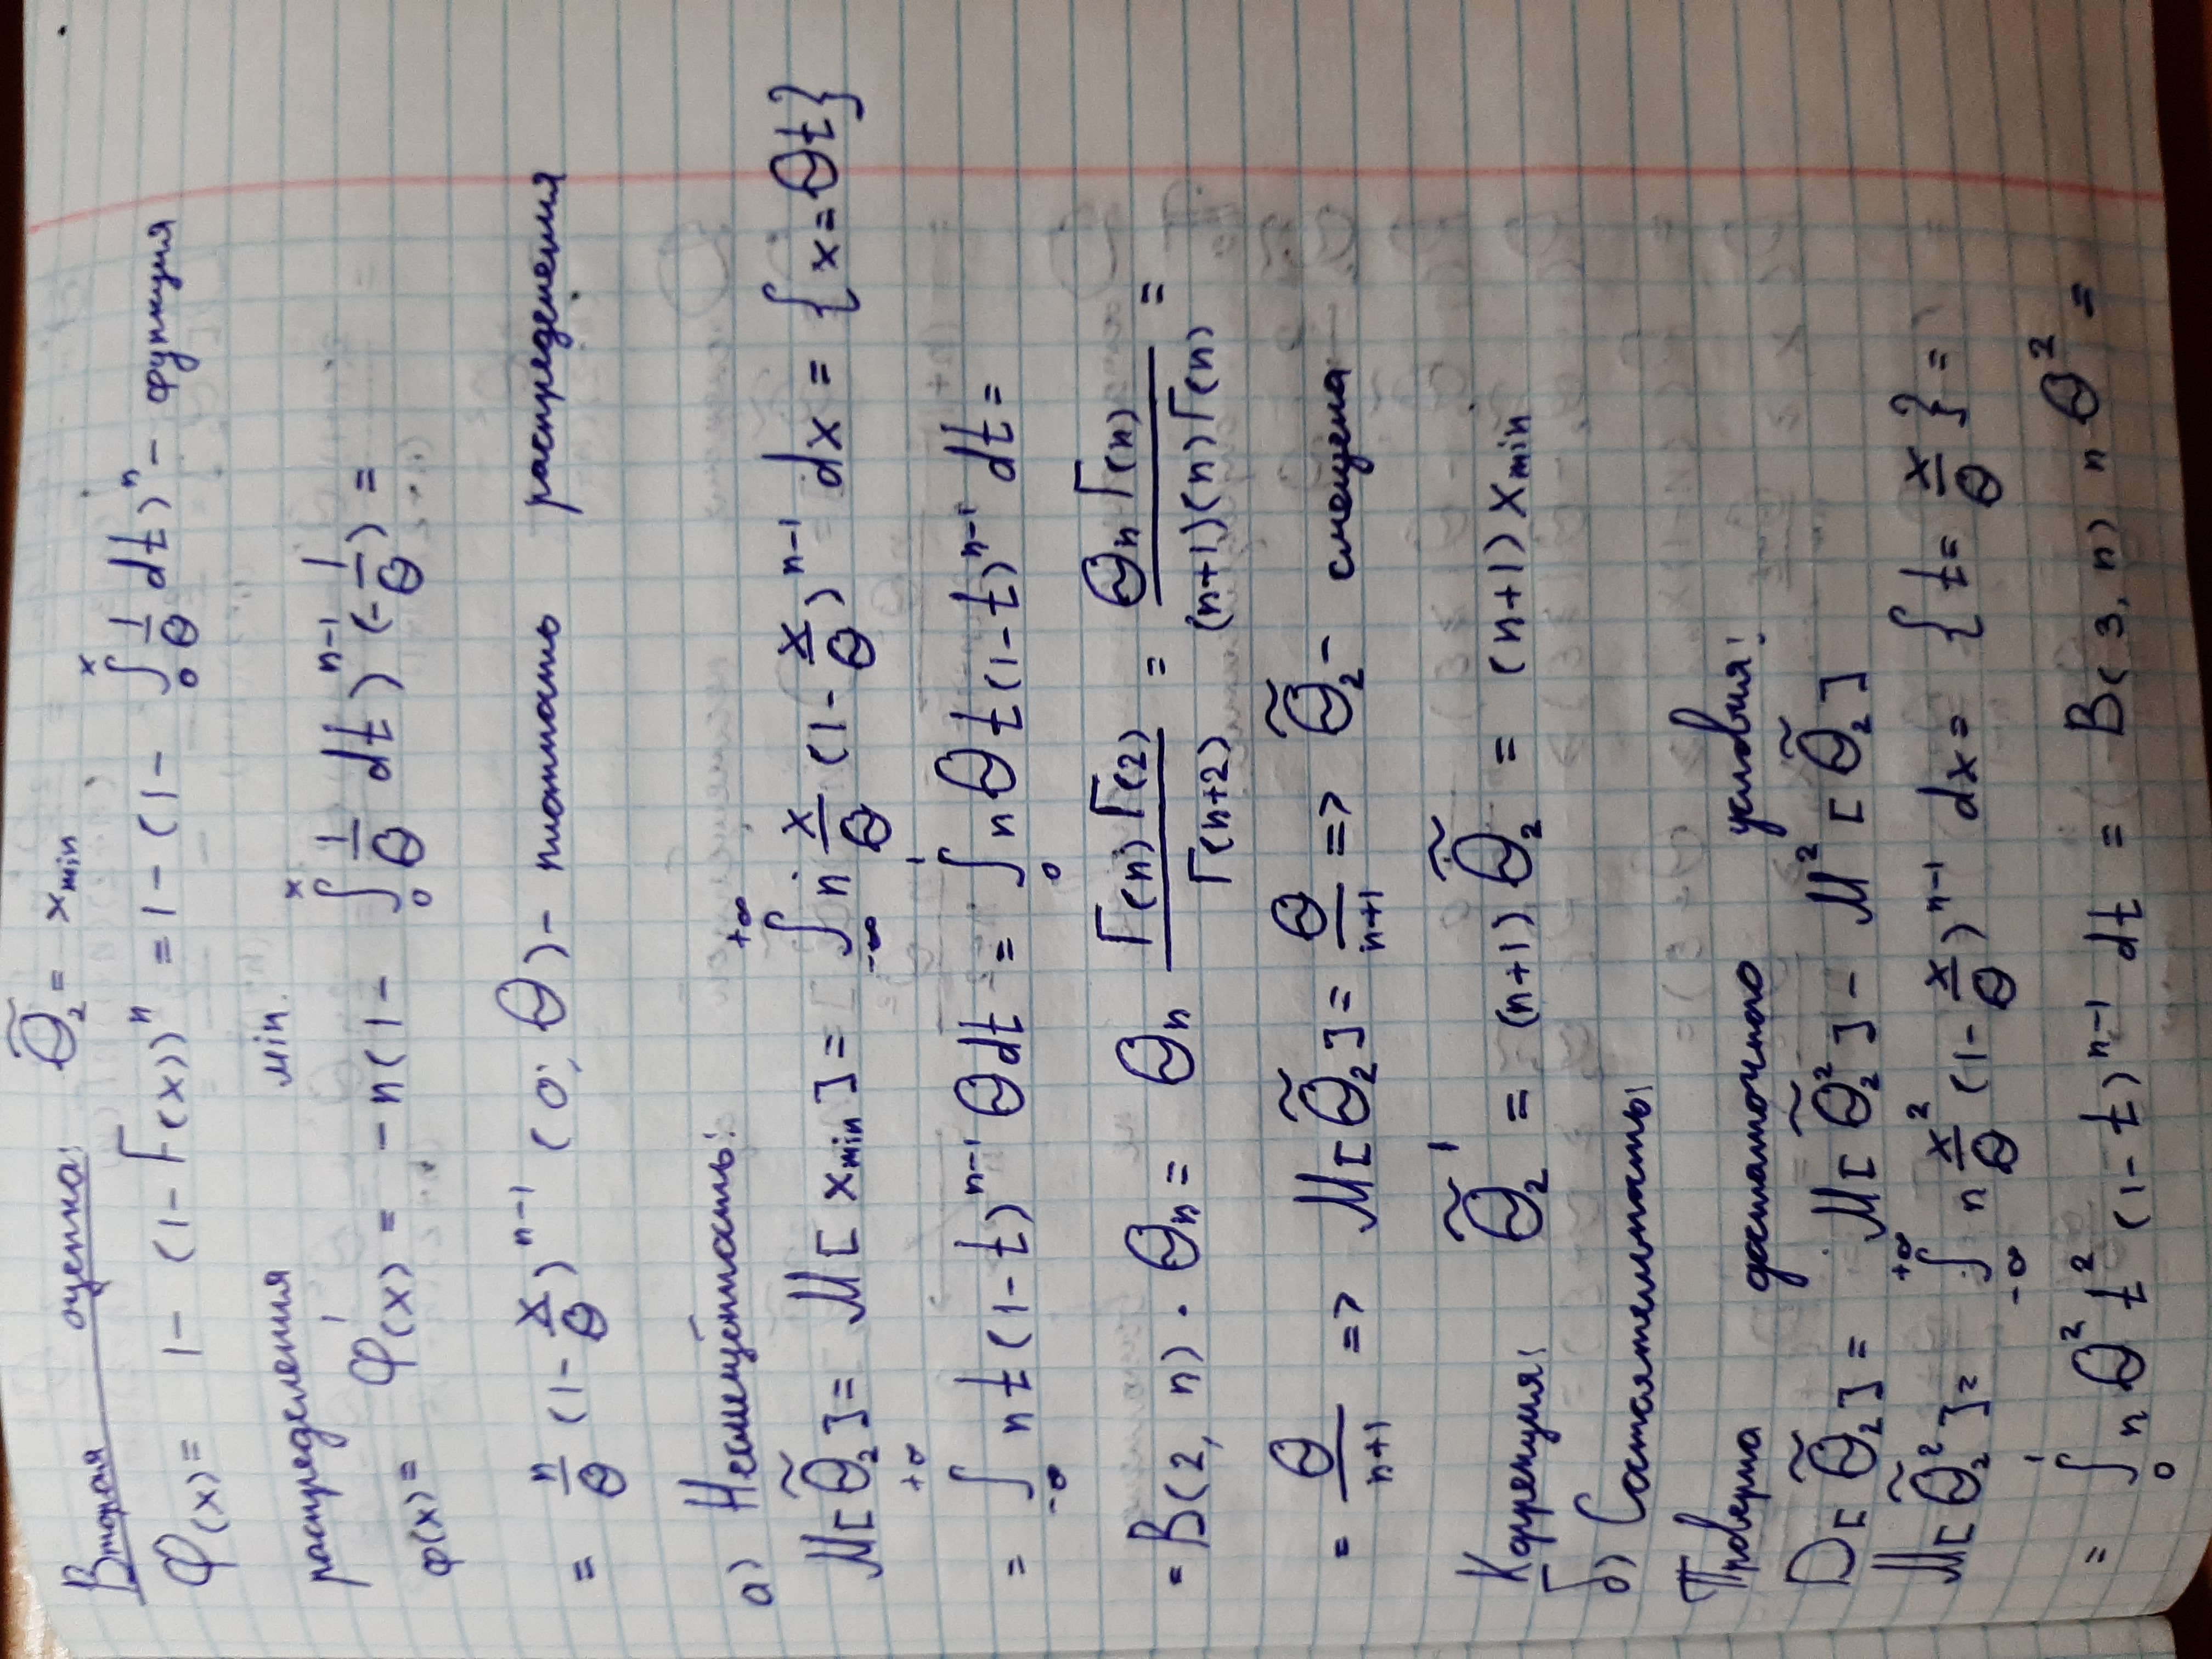 Вторая оценка: θ̃₂ = x_min
Φ(x) = 1 - (1 - F(x))ⁿ = 1 - (1 - ∫₀ˣ 1/θ dt)ⁿ - функция
распределения min.
φ(x) = Φ'(x) = -n(1 - ∫₀ˣ 1/θ dt)ⁿ⁻¹ (-1/θ) =
= n/θ (1 - x/θ)ⁿ⁻¹ (0; θ) - плотность распределения
а) Несмещённость:
M[θ̃₂] = M[x_min] = ∫₋∞⁺∞ n x/θ (1 - x/θ)ⁿ⁻¹ dx = {x = θt}
= ∫₋∞⁺∞ nt(1-t)ⁿ⁻¹ θdt = ∫₀¹ nθt(1-t)ⁿ⁻¹ dt =
= B(2, n) · θn = θn Г(n)Г(2)/Г(n+2) = θnГ(n)/(n+1)(n)Г(n) =
= θ/(n+1) => M[θ̃₂] = θ/(n+1) => θ̃₂ - смещена
Коррекция: θ̃₂' = (n+1)θ̃₂ = (n+1)x_min
б) Состоятельность:
Проверка достаточного условия:
D[θ̃₂] = M[θ̃₂²] - M²[θ̃₂]
M[θ̃₂²] = ∫₋∞⁺∞ n x²/θ (1 - x/θ)ⁿ⁻¹ dx = {t = x/θ} =
= ∫₀¹ nθ²t²(1-t)ⁿ⁻¹ dt = B(3, n) nθ² =